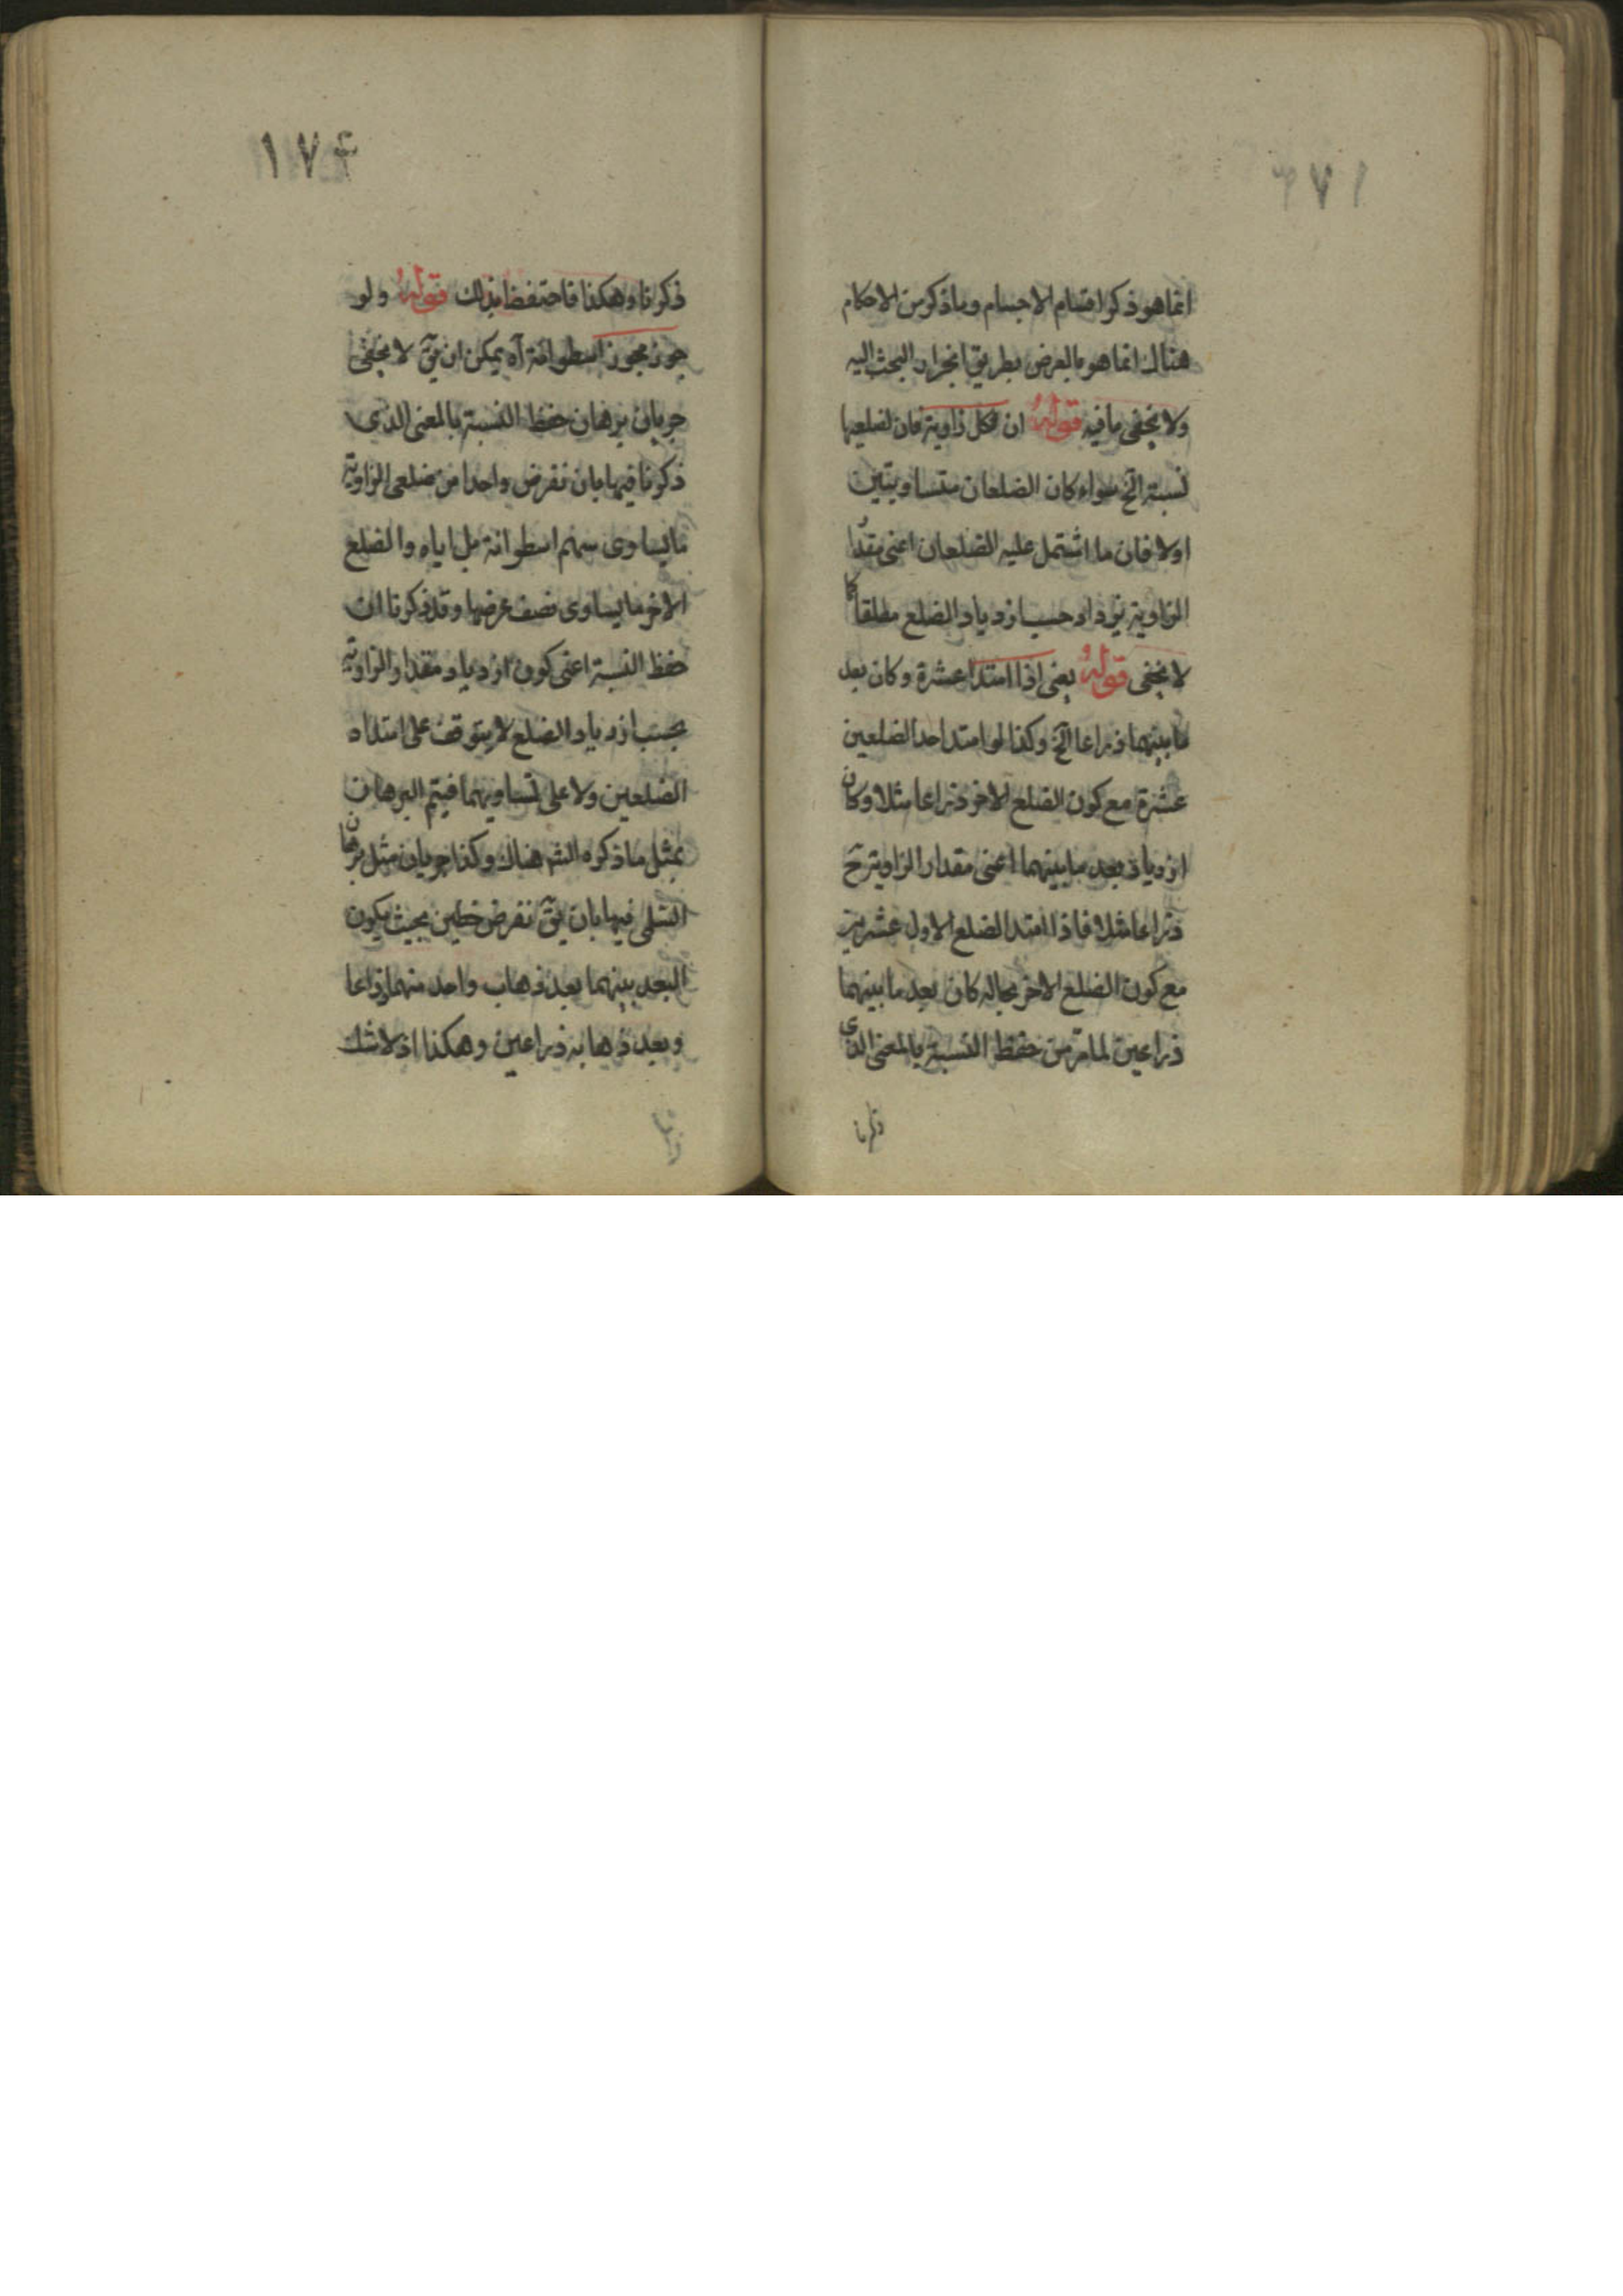 انما هو ذكر اقسام الاجسام وما ذكر من الاحكام
هناك انما هو بالعرض بطريق انجرار البحث اليه
ولا يخفى ما فيه قوله ان لكل زاوية فان لضلعيها
نسبة الخ سواء كان الضلعان متساويتين
اولا فان ما اشتمل عليه الضلعان اعنى مقدار
الزاوية يزداد حسب ازدياد الضلع مطلقا كما
لا يخفى قوله يعنى اذا امتدا عشرة وكان بعد
ما بينهما ذراعا الخ وكذا لو امتد احد الضلعين
عشرة مع كون الضلع الاخر ذراعا مثلا وكان
ازدياد بعد ما بينهما اعنى مقدار الزاوية ح
ذراعا مثلا فاذا امتد الضلع الاول عشرين
مع كون الضلع الاخر بحاله كان بعد ما بينهما
ذراعين لما مر من حفظ النسبة بالمعنى الذى
ذكرنا
١٧۴
ذكرنا وهكذا فاحتفظ بذلك قوله ولو
جوز مجوز اسطوانة آه يمكن ان يق لا يخفى
جريان برهان حفظ النسبة بالمعنى الذى
ذكرنا فيها بان نفرض واحدا من ضلعى الزاوية
ما يساوى سهم اسطوانة بل اياه والضلع
الاخر ما يساوى نصف عرضها وقد ذكرنا ان
حفظ النسبة اعنى كون ازدياد مقدار الزاوية
بحسب ازدياد الضلع لا يتوقف على امتداد
الضلعين ولا على تساويهما فيتم البرهان
بمثل ما ذكره الشه هناك وكذا جريان مثل برهان
السلمى فيها بان يق نفرض خطين بحيث يكون
البعد بينهما بعد ذهاب واحد منهما ذراعا
وبعد ذهابه ذراعين وهكذا اذ لا شك